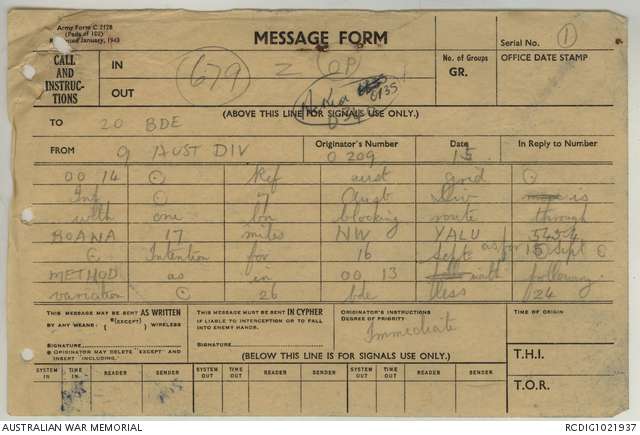 Army Form C 2128
(Pads of 100)
January, 1943
MESSAGE FORM
Serial No. 1
CALL
AND
INSTRUC-
TIONS
IN
OUT
679
Z
OP
No. of Groups
GR.
OFFICE DATE STAMP
0135
(ABOVE THIS LINE FOR SIGNALS USE ONLY.)
TO 20 BDE
FROM 9 AUST DIV
Originator's Number
O 209
Date
15
In Reply to Number
00 14 ⊙ Ref aust grid ⊙
Int 7 Aust Div is
with one bn blocking route through
BOANA 17 miles NW YALU 5454
⊙ Intention for 16 Sept as for 15 Sept ⊙
METHOD as in 00 13 with following
variation ⊙ 26 bde less 24
THIS MESSAGE MAY BE SENT AS WRITTEN
BY ANY MEANS. (EXCEPT) WIRELESS
SIGNATURE
ORIGINATOR MAY DELETE "EXCEPT" AND
INSERT "INCLUDING."
THIS MESSAGE MUST BE SENT IN CYPHER
IF LIABLE TO INTERCEPTION OR TO FALL
INTO ENEMY HANDS.
SIGNATURE
ORIGINATOR'S INSTRUCTIONS
DEGREE OF PRIORITY
Immediate
TIME OF ORIGIN
(BELOW THIS LINE IS FOR SIGNALS USE ONLY.)
T.H.I.
T.O.R.
SYSTEM IN
TIME IN
READER
SENDER
SYSTEM OUT
TIME OUT
READER
SENDER
SYSTEM OUT
TIME OUT
READER
SENDER
AUSTRALIAN WAR MEMORIAL
RCDIG1021937